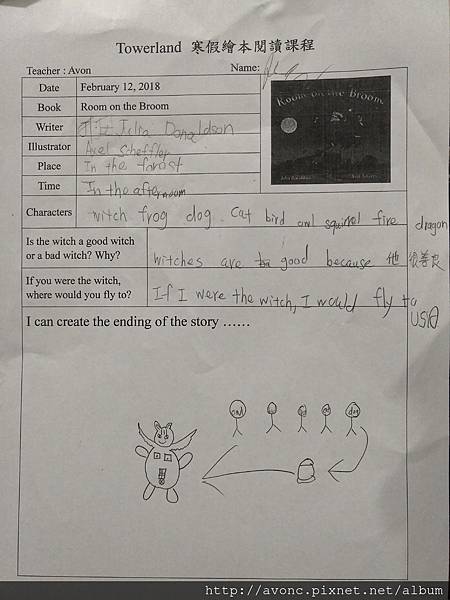 Towerland 寒假繪本閱讀課程
Teacher : Avon Name:
Date February 12, 2018
Book Room on the Broom
Room on the Broom
Writer Julia Donaldson
Illustrator Axel Scheffler
Place In the forest
Time In the afternoom
Characters witch frog dog cat bird owl squirrel fire dragon
Is the witch a good witch
or a bad witch? Why?
witches are good because 他 很善良
If you were the witch,
where would you fly to?
If I were the witch, I would fly to
USA
I can create the ending of the story ……
owl
cat
dog
http://avonc.pixnet.net/album